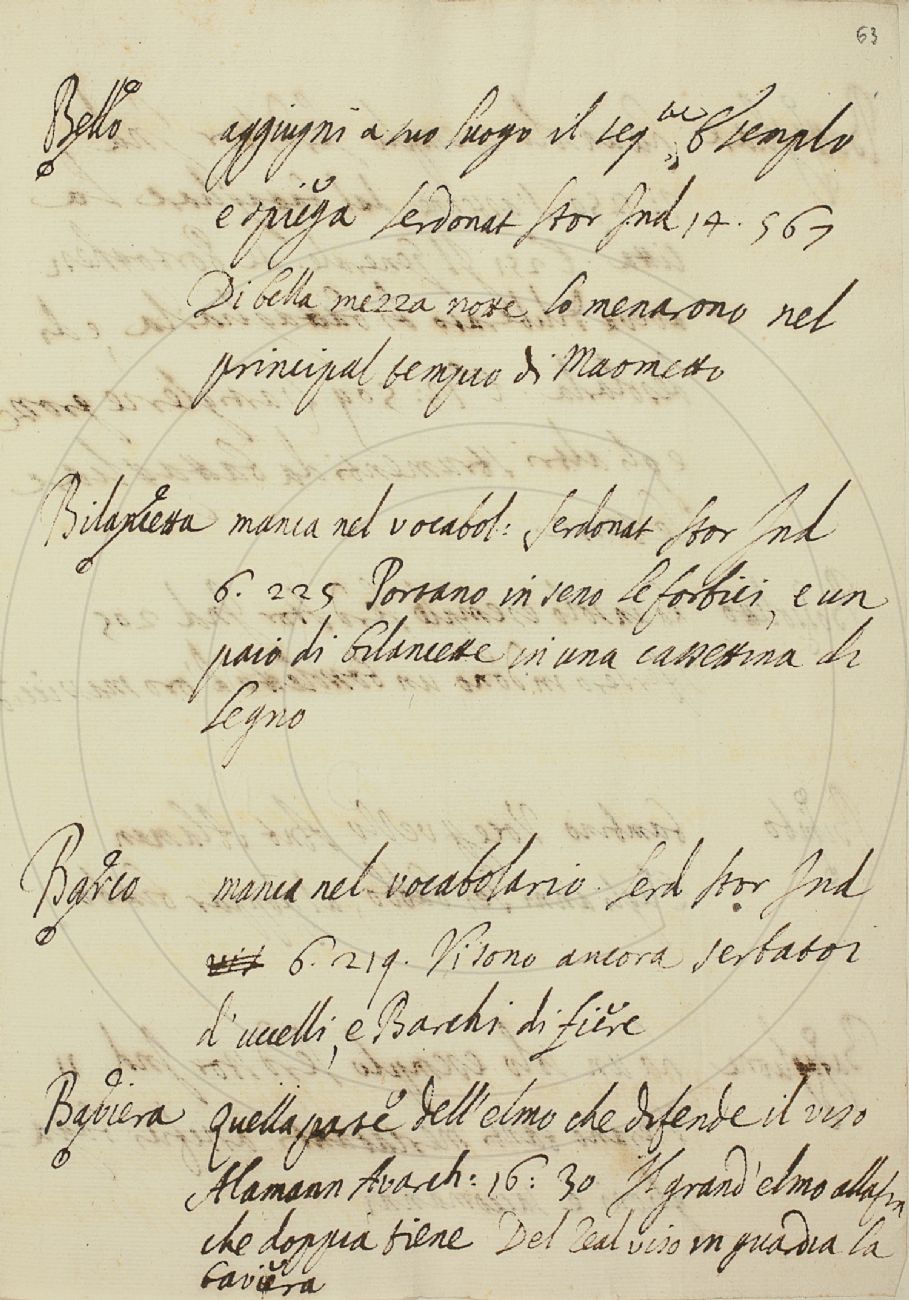 63
Bello aggiugni a suo luogo il seg.te esemplo
e spiega Serdonat Stor Ind 14. 567
Di bella mezza notte lo menarono nel
principal tempio di Maometto
Bilancetta manca nel vocabol: Serdonat Stor Ind
6. 225 Portano in seno le forbici, e un
paio di bilancette in una cassettina di
legno
Barco manca nel vocabolario. Serd Stor Ind
6. 219. Vi sono ancora serbatoi
d'uccelli, e Barchi di fiere
Baviera Quella parte dell'elmo che difende il viso
Alamann Avarch: 16: 30 Il grand'elmo alla fin
che doppia tiene Del Real viso in guardia la
baviera